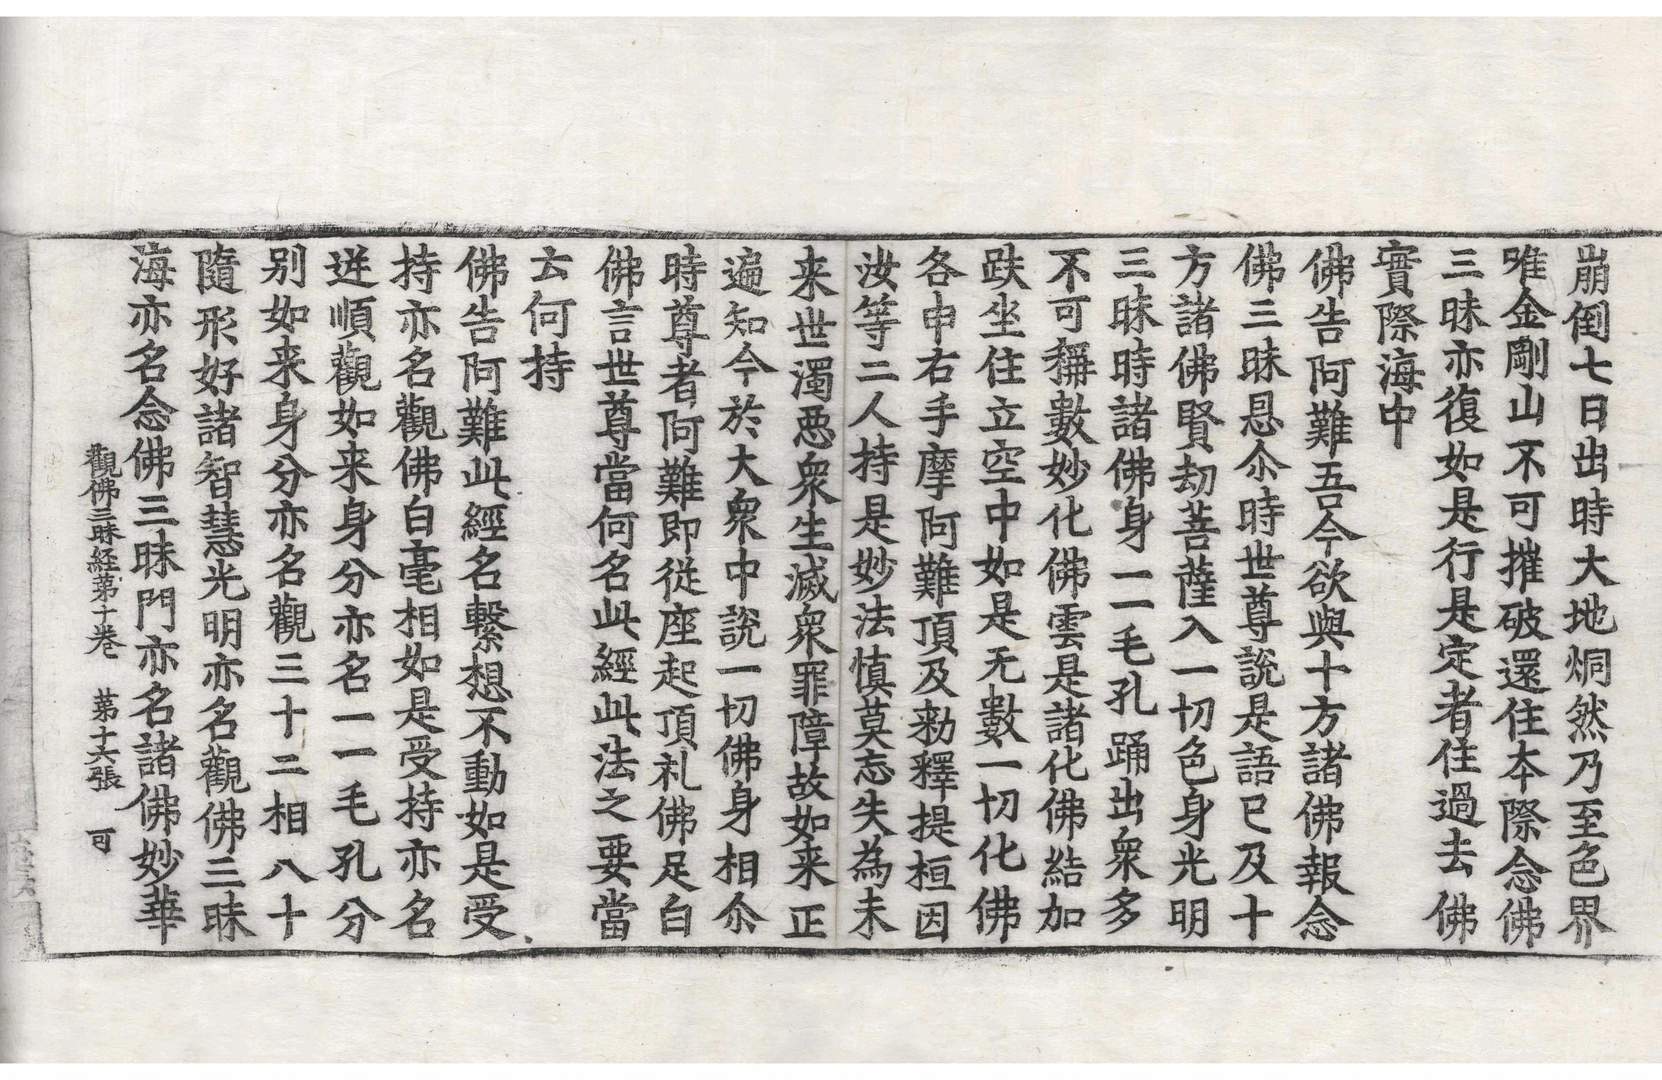 崩倒七日出時大地烔然乃至色界
唯金剛山不可摧破還住夲際念佛
三昧亦復如是行是定者住過去佛
實際海中
佛告阿難吾今欲與十方諸佛報念
佛三昧恩尒時世尊說是語已及十
方諸佛賢劫菩薩入一切色身光明
三昧時諸佛身一一毛孔踊出衆多
不可稱數妙化佛雲是諸化佛結加
趺坐住立空中如是无數一切化佛
各申右手摩阿難頂及勑釋提桓因
汝等二人持是妙法慎莫忘失為未
来世濁惡衆生滅衆罪障故如来正
遍知今於大衆中說一切佛身相尒
時尊者阿難即從座起頂礼佛足白
佛言世尊當何名此經此法之要當
云何持
佛告阿難此經名繫想不動如是受
持亦名觀佛白毫相如是受持亦名
逆順觀如来身分亦名一一毛孔分
别如来身分亦名觀三十二相八十
隨形好諸智慧光明亦名觀佛三昧
海亦名念佛三昧門亦名諸佛妙華
觀佛三昧経苐十卷 苐十六張 可